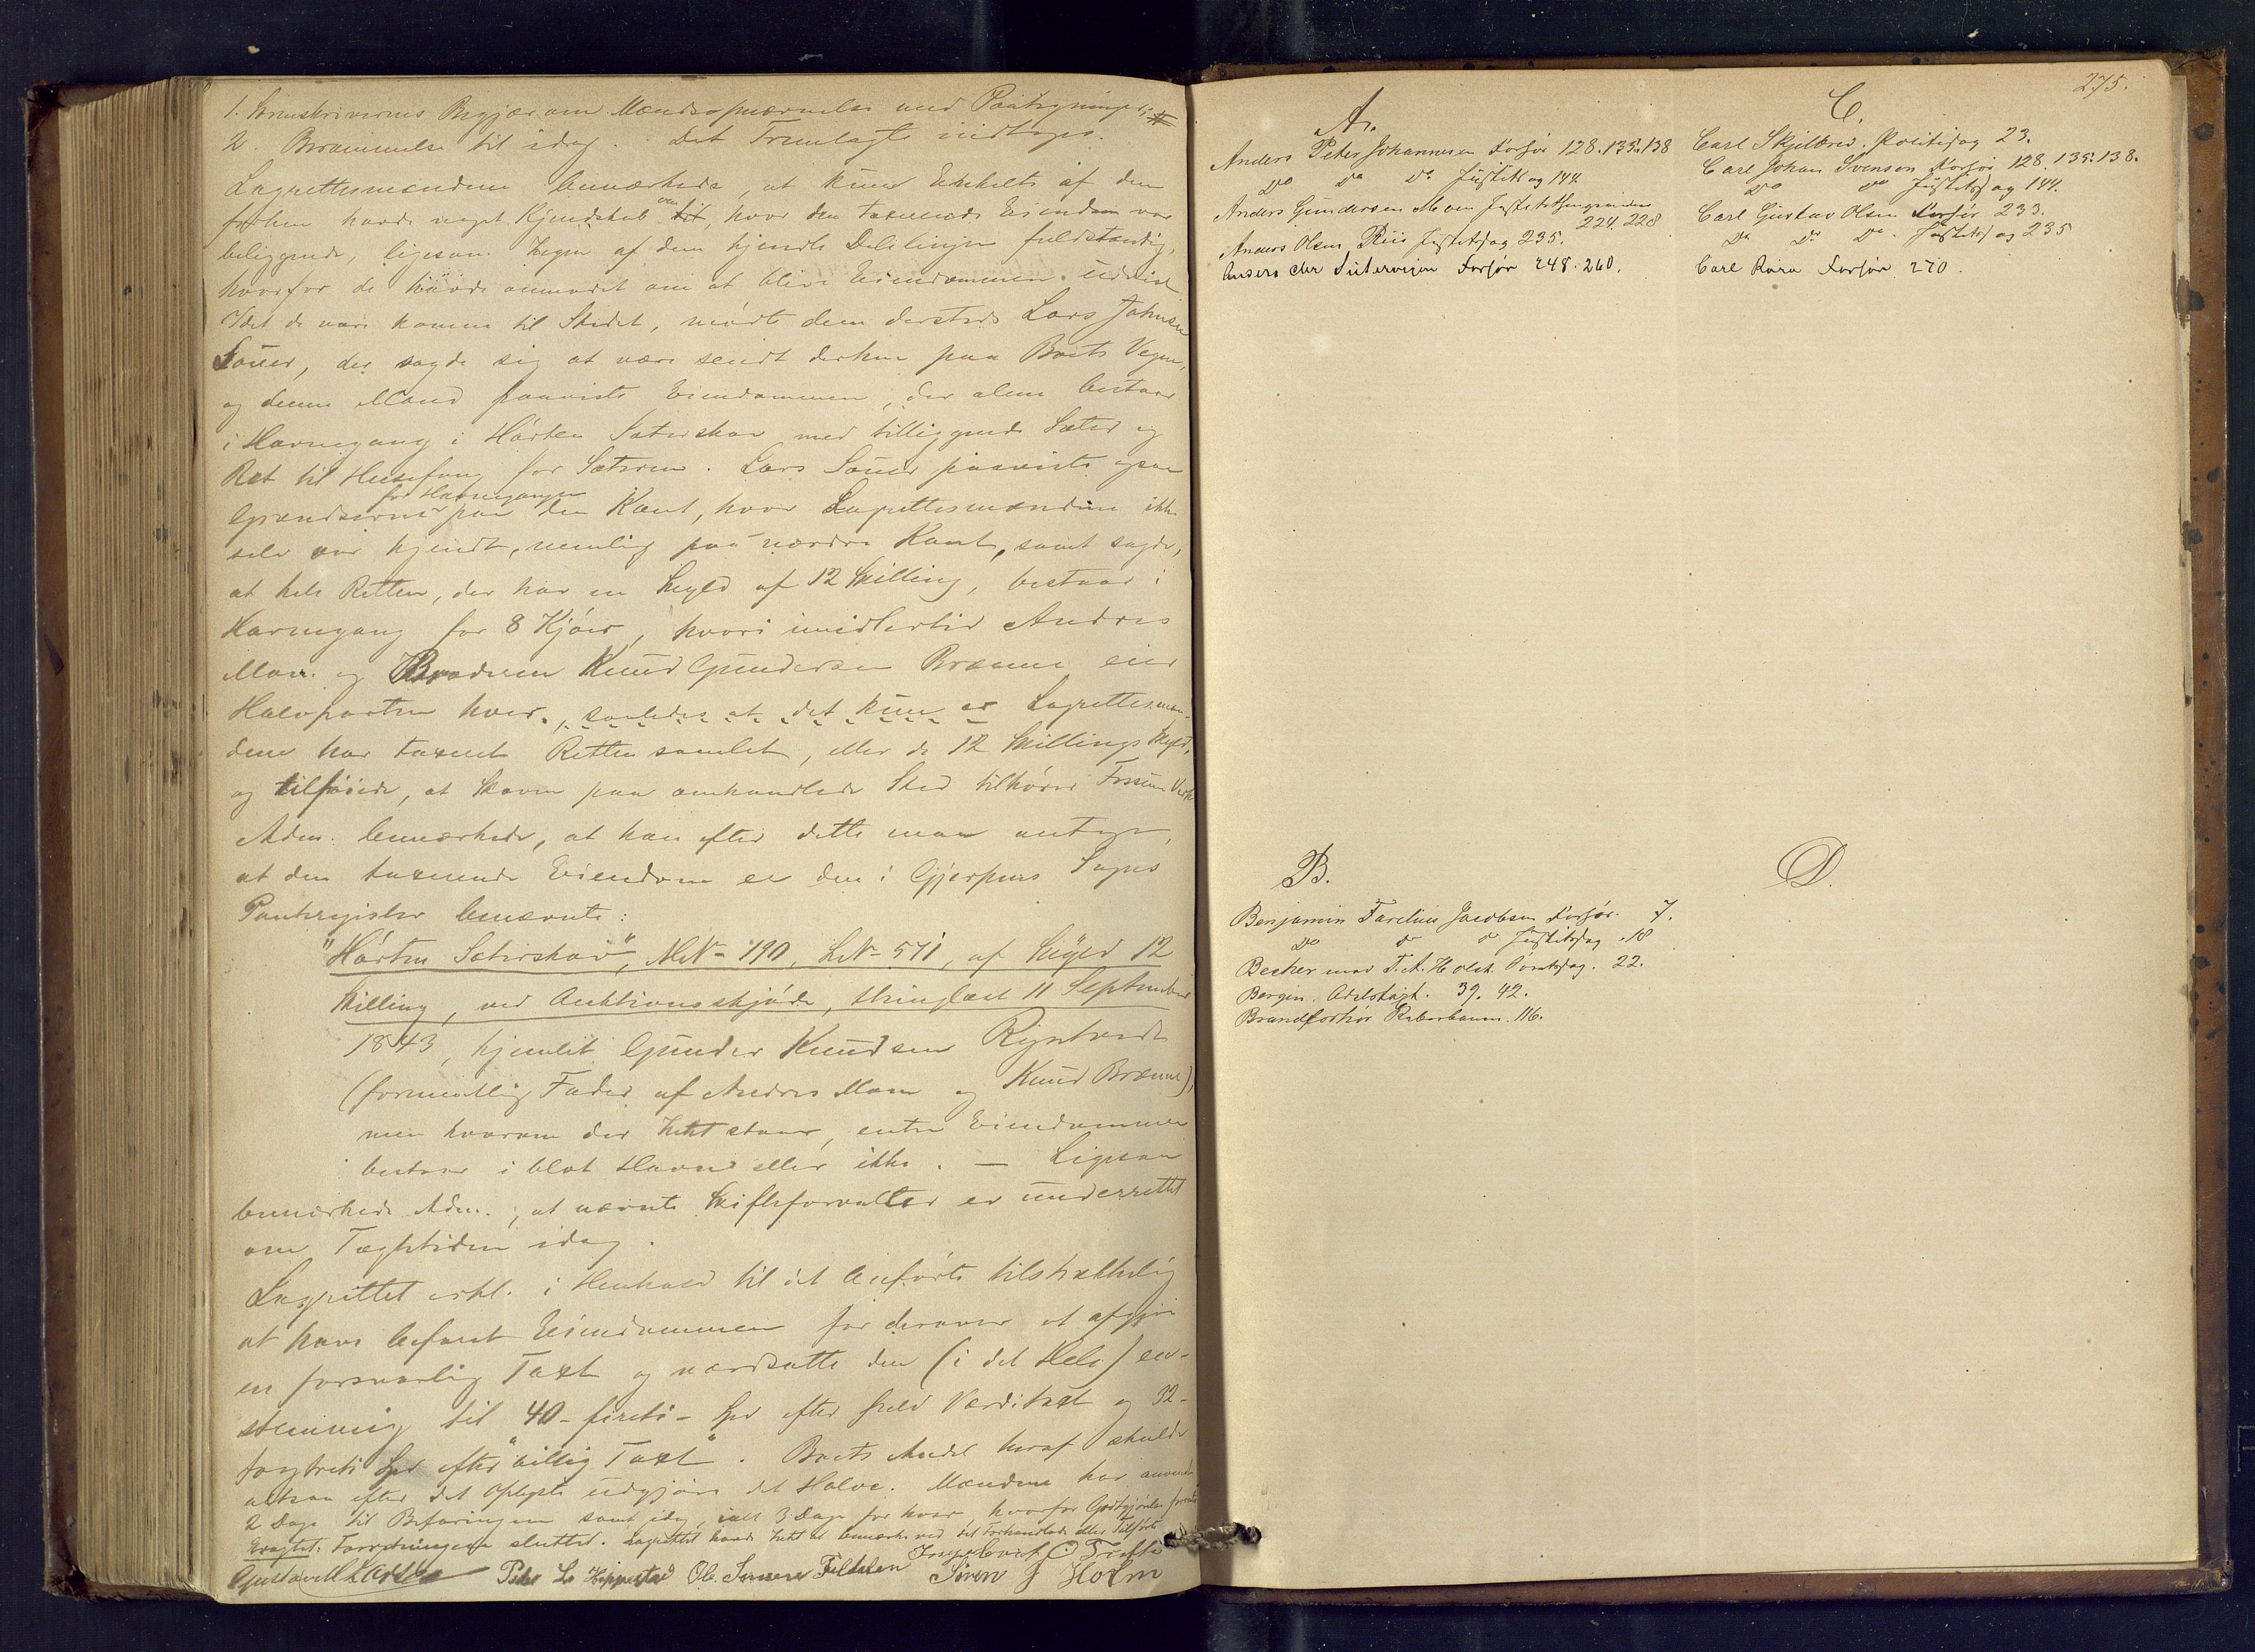 1. Sorenskriverens Begjær om Mændsopnævnelse med Paategninger,
2. Berammelse til idag. Det Fremlagte indtages.
Lagrettesmændene bemærkede, at kun Enkelte af dem
forhen havde noget Kjendskab om, hvor den taxerende Eiendom var
beliggende, ligesom Ingen af dem kjendte Delelinjen fuldstændig,
hvorfor de havde anmodet om at blive Eiendommen udvist.
Idet de vare komne til Stedet, mødte dem dersteds Lars Johnsen
Sauer, der sagde sig at være sendt derhen paa Boets Vegne,
og denne Mand paaviste Eiendommen, der alene bestaar
i Havnegang i Hørten Sæterskov med tilliggende Sæter og
Ret til Husefang for Sæteren. Lars Sauer paaviste ogsaa
Grændserne for Havnegangen paa den Kant, hvor Lagrettesmændene ikke
selv var kjendt, nemlig paa nordre Kant, samt sagde,
at hele Retten, der har en Skyld af 12 Skilling, bestaar i
Havnegang for 8 Kjør, hvori imidlertid Andres
Moen og Broderen Knud Gundersen Brænne eier
Halvparten hver, saaledes at det kun er Lagrettesmæn-
dene har taxeret Retten samlet, eller de 12 Skillings Skyld,
og tilføiede, at Skoven paa omhandlede Sted tilhører Fossum Verk
Adm. bemærkede, at han efter dette maa antage,
at den taxerende Eiendom er den i Gjerpens Sogns
Panteregister benævnte:
"Hørten Sæterskov", MN- 190, LN- 571, af Skyld 12
Skilling, ved Auktionsskjøde, thinglæst 11 September
1843, hjemlet Gunder Knudsen
(formentlig Fader af Andres Moen og Knud Brænne),
men hvorom der Intet staar, enten Eiendommen
bestaar i blot Havn eller ikke. — Ligesaa
bemærkede Adm., at nævnte Skifteforvalter er underrettet
om Tægtstiden idag.
Lagrettet erkl. i Henhold til det Anførte tilstrækkelig
at have befaret Eiendommen for derover at afgive
en forsvarlig Taxt og værdsatte den (i det Hele) en-
stemmig til 40 - firti - Spd efter fuld Værditaxt og 32 -
togtreti Spd efter "billig Taxt". Boets Andel heraf skulde
altsaa efter det Oplyste udgjøre det Halve. Mændene har anvendt
2 Dage til Befaringen samt idag, ialt 3 Dage for hver, hvorfor Godtgjørelse
Forretningen sluttet. Lagrettet havde Intet at bemærke ved det Forhandlede eller Tilførte
Ingebret O Trefte
Peder L Hippestad Ole Fieldalen Søren J Holm
275.
A.
Anders Peter Johannesen Forhør 128. 135. 138
Do Do Do Justitssag 144.
Anders Gundersen Moen
224. 228
Anders Olsen Riis Justitssag 235.
Forhør 248. 260.
B.
Benjamin Jacobsen Forhør. 7.
Do do do Justitssag. 18
Becker mod T. A. Holst. 22.
Bergin. 39. 42.
Brandforhør 116.
C.
Carl Skjelbred. Politisag 23.
Carl Johan Svensen Forhør 128. 135. 138.
Do Do Justitssag 144.
Carl Gustav Olsen Forhør 233.
Do Do Do. Justitssag 235
Carl Forhør 270.
D.